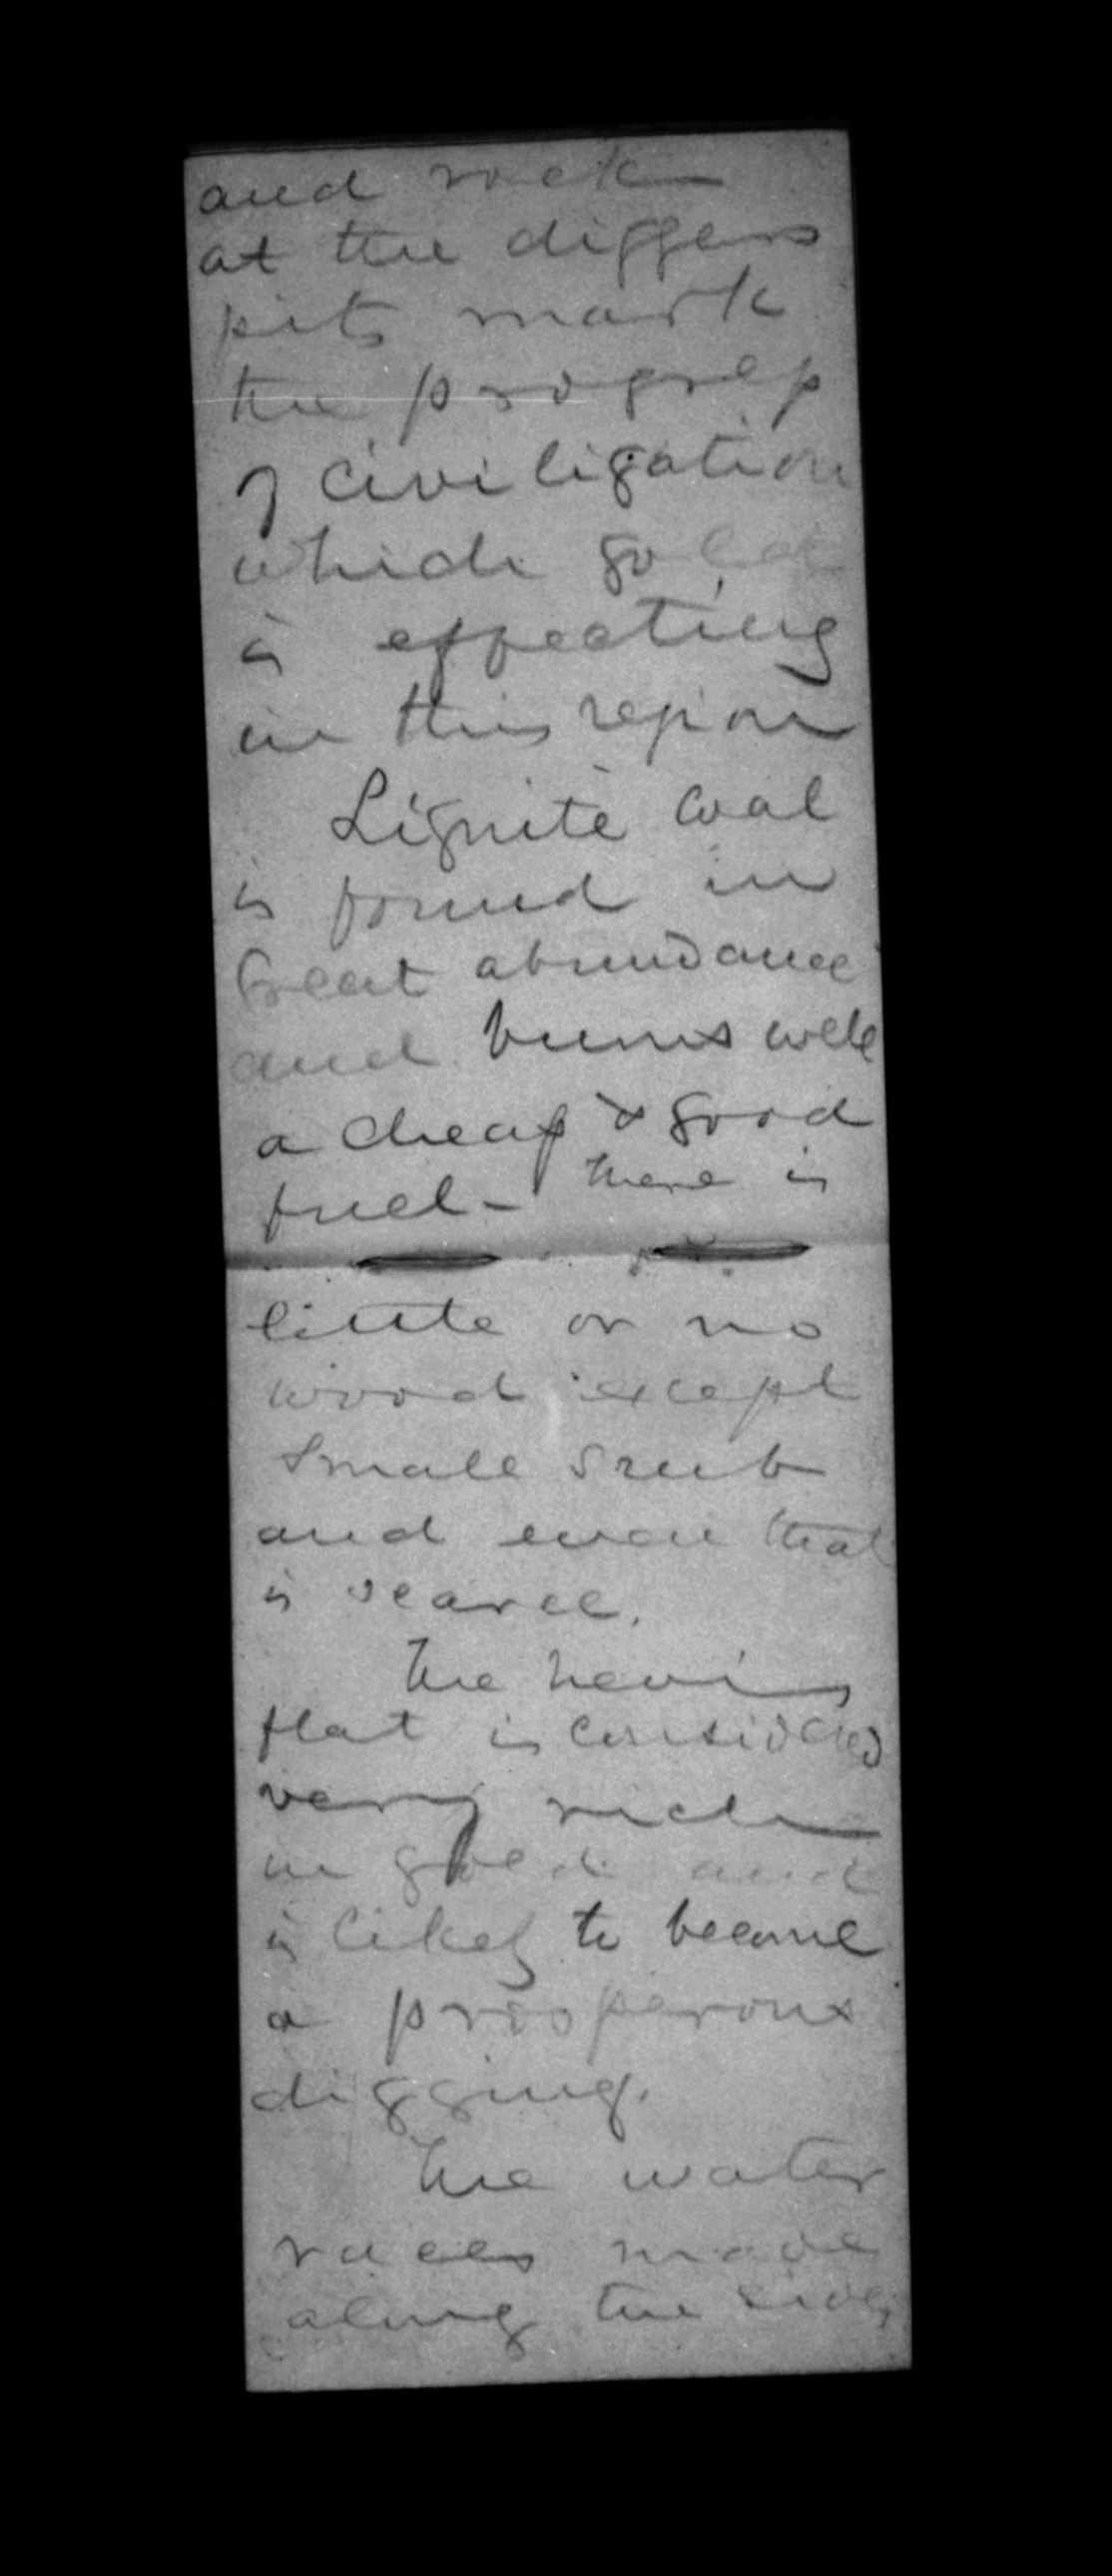 and rock
at the diggers
pits mark
the progress
of civilization
which gold
is effecting
in this region
Lignite coal
is found in
Great abundance
and burns well
a cheap & good
fuel - there is
little or no
wood except
small srub
and even that
is scarce.
The Nevis
flat is considered
very rich
in gold and
is likely to become
a prosperous
digging.
The water
races made
along the sides